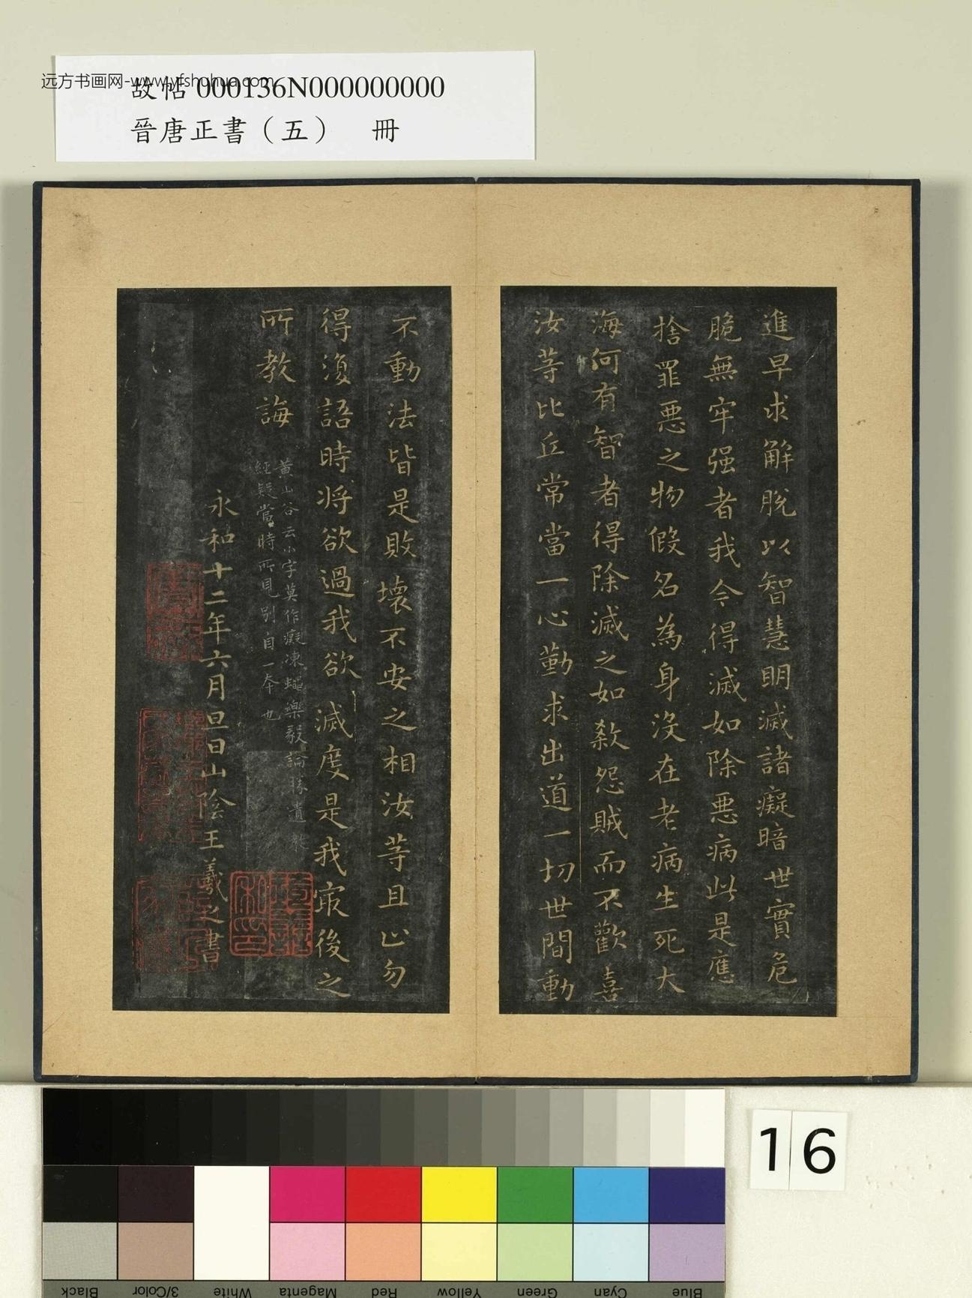 远方书画网-www.yfshuhua.com
故帖 000136N000000000
晉唐正書（五） 冊
進早求解脫以智慧明滅諸癡暗世實危
脆無牢强者我今得滅如除惡病此是應
捨罪惡之物假名為身沒在老病生死大
海何有智者得除滅之如殺怨賊而不歡喜
汝等比丘常當一心勤求出道一切世間動
不動法皆是敗壞不安之相汝等且止勿
得復語時將欲過我欲滅度是我㝡後之
所教誨
黃山谷云小字莫作癡凍蠅樂毅論勝遺
經疑當時所見別自一本也
永和十二年六月旦日山陰王羲之書
16
Black
3/Color
White
Magenta
Red
Yellow
Green
Cyan
Blue